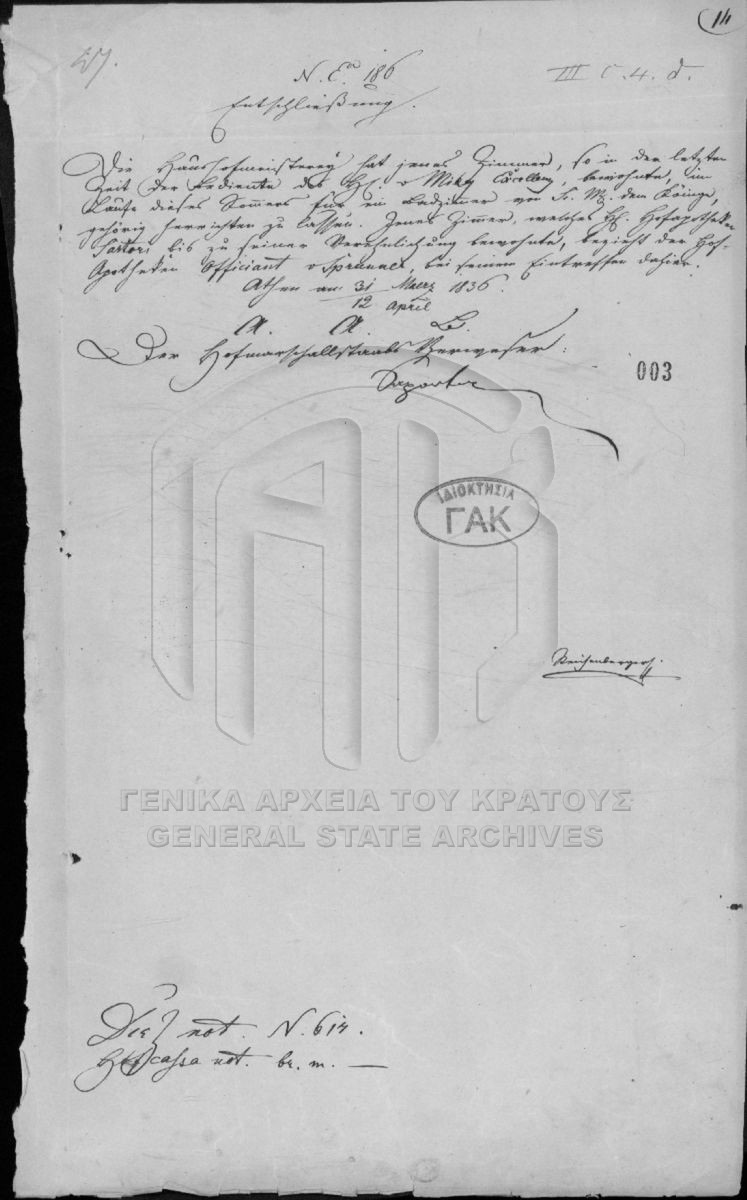 14
N. E. 186
III C. 4. d.
Entschließung.
Die Haushofmeisterey hat jenes Zimmer, so in der letzten
Zeit der Bediente des H. v Miky bewohnte, im
Laufe dieses Sommers für ein Badzimmer von Sr. M. dem Könige,
gehörig herrichten zu lassen. Jenes Zimmer, welches H. Hofapotheker
Sartori bis zu seiner Verehelichung bewohnte, bezieht der Hof-
Apotheken Officiant v Sprunner, bei seinem Eintreffen dahier.
Athen am 31 Maerz 1836.
12 April
A. A. B.
Der Hofmarschallstaabs Verweser:
Saporta
003
ΙΔΙΟΚΤΗΣΙΑ
ΓΑΚ
Reichenberger
ΓΕΝΙΚΑ ΑΡΧΕΙΑ ΤΟΥ ΚΡΑΤΟΥΣ
GENERAL STATE ARCHIVES
not. N.
Hofcassa not. br. m. —